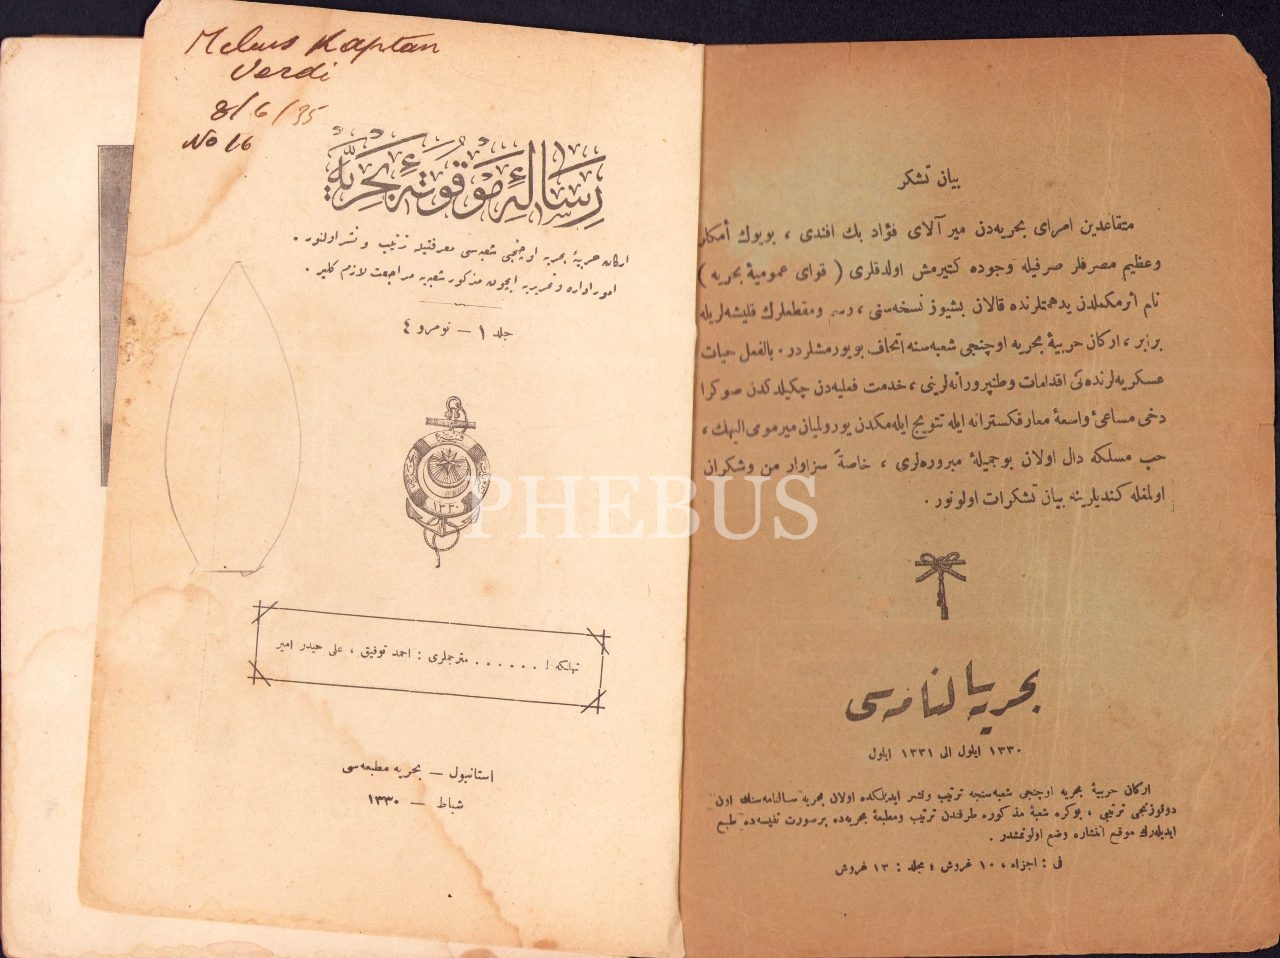 Mebus Kaptan
Verdi
8/6/35
No 16
رسالهٔ موقوتهٔ بحریه
ارکان حربیهٔ بحریه اوچنجی شعبه‌سی معرفتیله ترتیب و نشر اولنور .
امور اداره و تحریریه ایچون مذکور شعبه‌یه مراجعت لازم کلیر .
جلد ١ — نومرو ٤
١٣٣٠
تهلکه ! . . . . . . مترجملری : احمد توفیق ، علی حیدر امیر
استانبول — بحریه مطبعه‌سی
شباط — ١٣٣٠
بیان تشکر
متقاعدین امرای بحریه‌دن میر آلای فؤاد بك افندی ، بویوك أمکلر
وعظیم مصرفلر صرفیله وجوده کتیرمش اولدقلری ( قوای عمومیهٔ بحریه )
نام اثرمکملدن یدهمتلرنده قالان بشیوز نسخه‌سنی ، رسم ومقطعلرك قلیشه‌لریله
برابر ، ارکان حربیهٔ بحریه اوچنجی شعبه‌سنه اتحاف بویورمشلردر . بالفعل حیات
عسکریه‌لرنده‌کی اقدامات وطنپرورانه‌لرینی ، خدمت فعلیه‌دن چکیلدکدن صوکرا
دخی مساعیٔ واسعهٔ معارفکسترانه ایله تتویج ایله‌مکدن یورولمیان میرمومی الیهك ،
حب مسلکه دال اولان بوجمیلهٔ مبروره‌لری ، خاصةً سزاوار من وشکران
اولمغله کندیلرینه بیان تشکرات اولونور .
بحریه سالنامه‌سی
١٣٣٠ ایلول الی ١٣٣١ ایلول
ارکان حربیهٔ بحریه اوچنجی شعبه‌سنجه ترتیب ونشر ایدیلمکده اولان بحریه سالنامه‌سنك اون
دوقوزنجی ترتیبی ، بوکره شعبهٔ مذکوره طرفندن ترتیب ومطبعهٔ بحریه‌ده برصورت نفیسه‌ده طبع
ایدیله‌رك موقع انتشاره وضع اولونمشدر .
فی : اجزاء ، ١٠ غروش ، مجلد : ١٣ غروش
PHEBUS